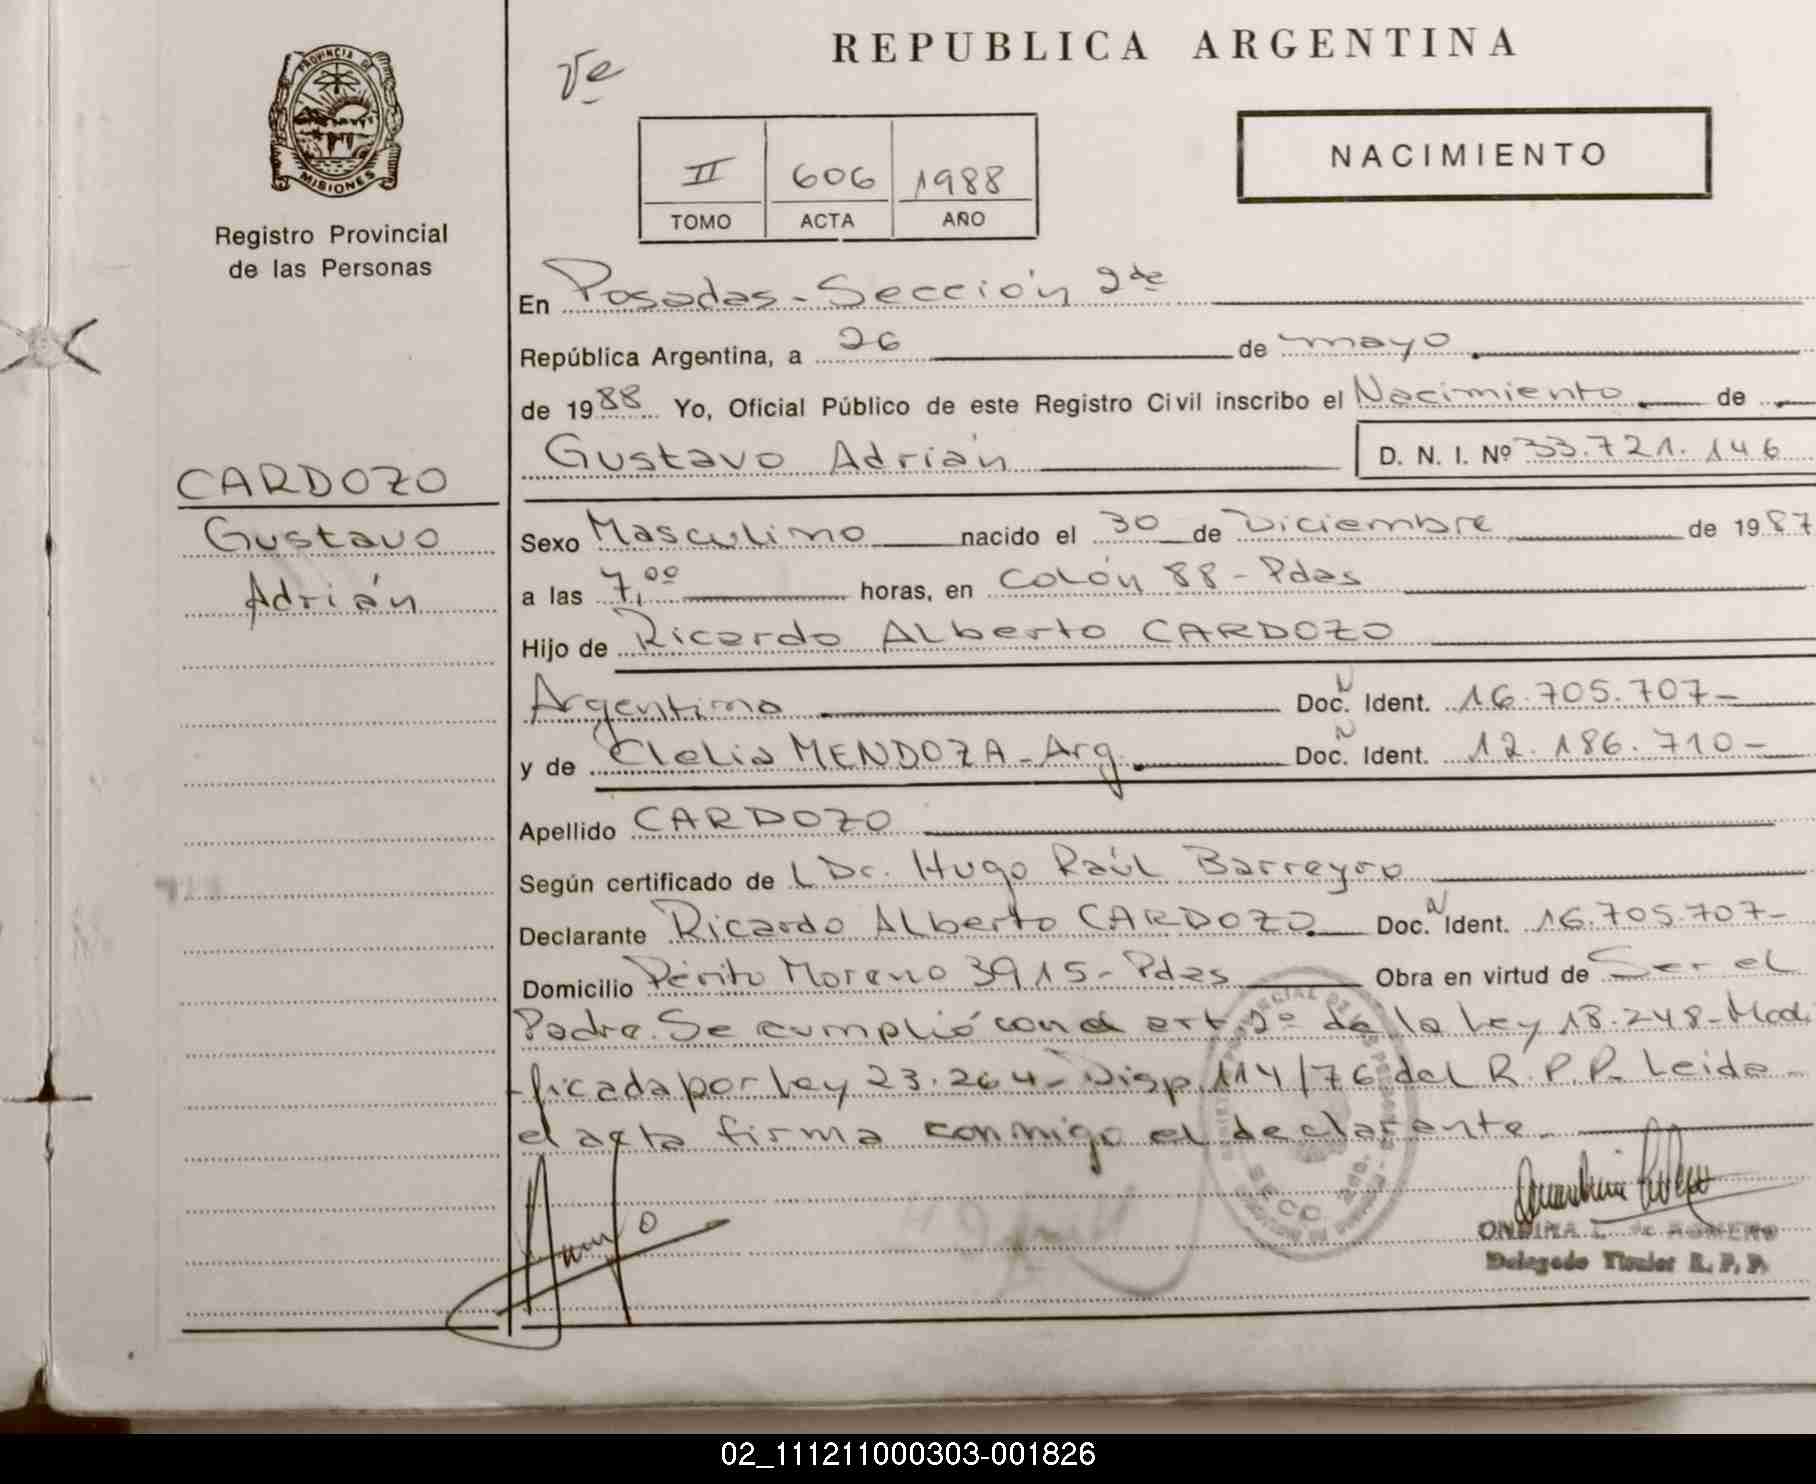 REPUBLICA ARGENTINA
PROVINCIA DE
MISIONES
Registro Provincial
de las Personas
II 606 1988
TOMO ACTA AÑO
NACIMIENTO
En Posadas - Sección 2da
República Argentina, a 26 de mayo
de 1988 Yo, Oficial Público de este Registro Civil inscribo el Nacimiento de
Gustavo Adrián D. N. I. Nº 33.721.146
CARDOZO
Gustavo
Adrián
Sexo Masculino nacido el 30 de Diciembre de 1987
a las 7,00 horas, en Colón 88 - Pdas
Hijo de Ricardo Alberto CARDOZO
Argentino Doc. N Ident. 16.705.707-
y de Clelia MENDOZA - Arg. Doc. N Ident. 12.186.710-
Apellido CARDOZO
Según certificado de l Dr. Hugo Raúl Barreyro
Declarante Ricardo Alberto CARDOZO Doc. N Ident. 16.705.707-
Domicilio Périto Moreno 3915 - Pdas Obra en virtud de Ser el
Padre. Se cumplió con el art 2º de la Ley 18.248 - Modi
-ficada por Ley 23.264 - Disp. 114/76 del R.P.P. Leída
el acta firma conmigo el declarante.
SECC. 2da.
ONDINA L. de ROMERO
Delegado Titular R. P. P.
02_111211000303-001826